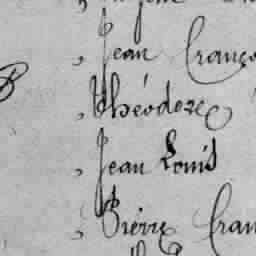 , Jean Franço
, Théodore
, Jean Louis
, Pierre Fran